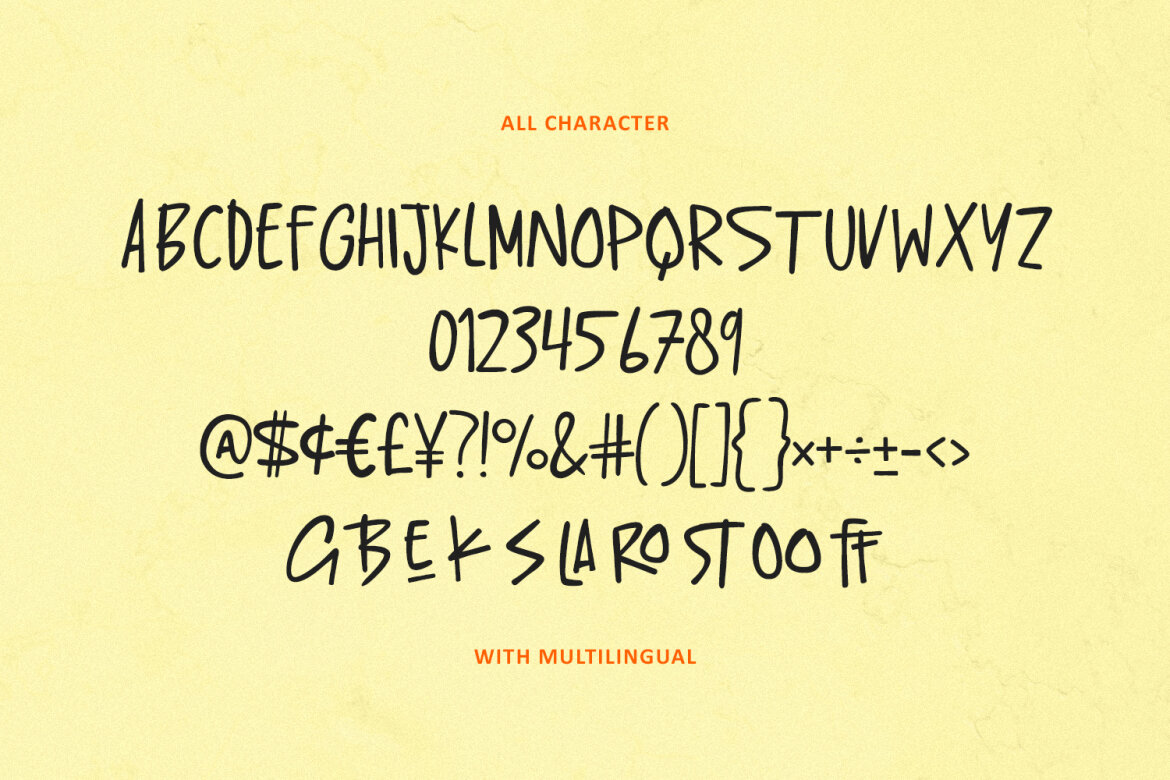 ALL CHARACTER
ABCDEFGHIJKLMNOPQRSTUVWXYZ
0123456789
@$¢€£¥?!%&#()[]{}×+÷±-<>
GBEKSLAROSTOOFF
WITH MULTILINGUAL